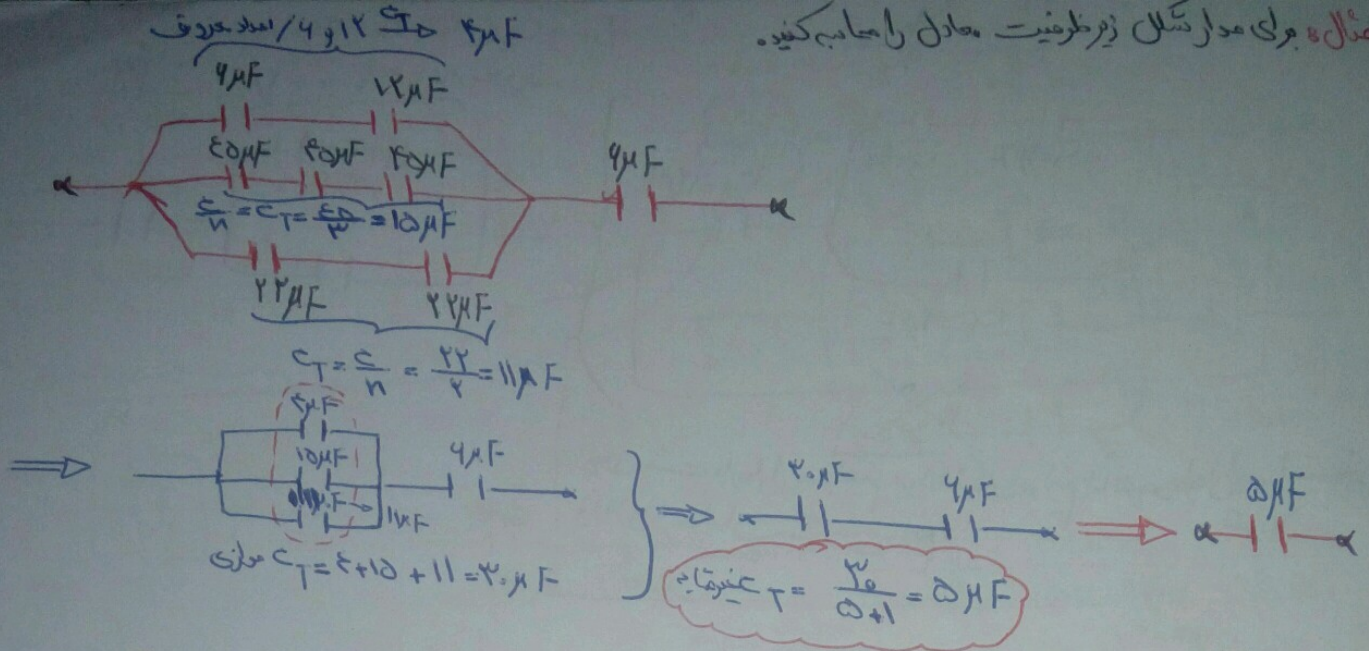 مثال: برای مدار شکل زیر ظرفیت معادل را محاسبه کنید.
۱۲ و ۶ / اعداد معروف C_T ⇒ ۴μF
۶μF ۱۲μF
۴۵μF ۴۵μF ۴۵μF
۶μF
C/n = C_T = ۴۵/۳ = ۱۵μF
۲۲μF ۲۲μF
C_T = C/n = ۲۲/۲ = ۱۱μF
⇒ ۴μF
۱۵μF ۶μF
۱۱μF
موازی C_T = ۴+۱۵+۱۱=۳۰μF
⇒ ۳۰μF ۶μF
C_T = ۳۰/۵+۱ = ۵μF
⇒ ۵μF